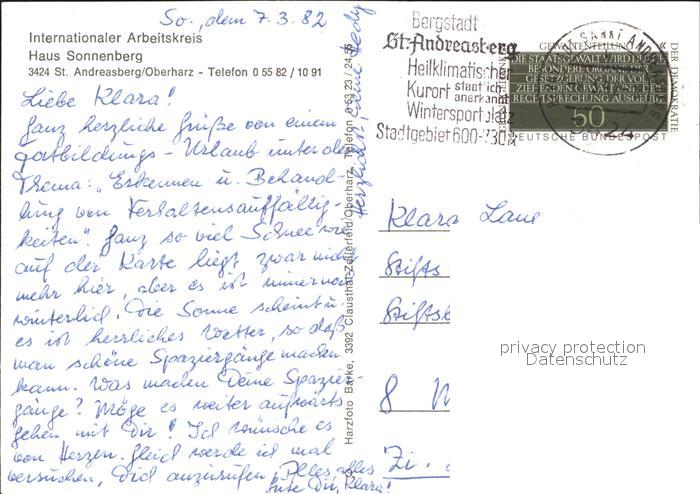 So., dem 7.3.82
Internationaler Arbeitskreis
Haus Sonnenberg
3424 St. Andreasberg/Oberharz - Telefon 0 55 82 / 10 91
Liebe Klara!
Ganz herzliche Grüße von einem
Fortbildungs - Urlaub unter dem
Thema: „Erkennen u. Behand-
lung von Verhaltensauffällig-
keiten". Ganz so viel Schnee wie
auf der Karte liegt zwar nicht
mehr hier, aber es ist immer noch
winterlich. Die Sonne scheint u.
es ist herrliches Wetter, so daß
man schöne Spaziergänge machen
kann. Was machen Deine Spazier-
gänge? Möge es weiter aufwärts
gehen mit Dir! Ich wünsche es
von Herzen. Gleich werde ich mal
versuchen, Dich anzurufen. Alles, alles
Gute Dir, Klara!
Herzlichst, Deine Hedy
Harzfoto Barke, 3392 Clausthal-Zellerfeld/Oberharz, Telefon 0 53 23 / 24
Bergstadt
St. Andreasberg
Heilklimatischer
Kurort staatlich
anerkannt
Wintersportplatz
Stadtgebiet 600-
GEWALTENTEILUNG
DIE STAATSGEWALT WIRD DURCH
BESONDERE ORGANE DER
GESETZGEBUNG DER VOLL
ZIEHENDEN GEWALT UND DER
RECHTSPRECHUNG AUSGEÜBT
50
DEUTSCHE BUNDESPOST
DER DEMOKRATIE
SANKT ANDREASBERG
Klara Lane
Stifts
Stiftsb
8 M
Zi.
privacy protection
Datenschutz